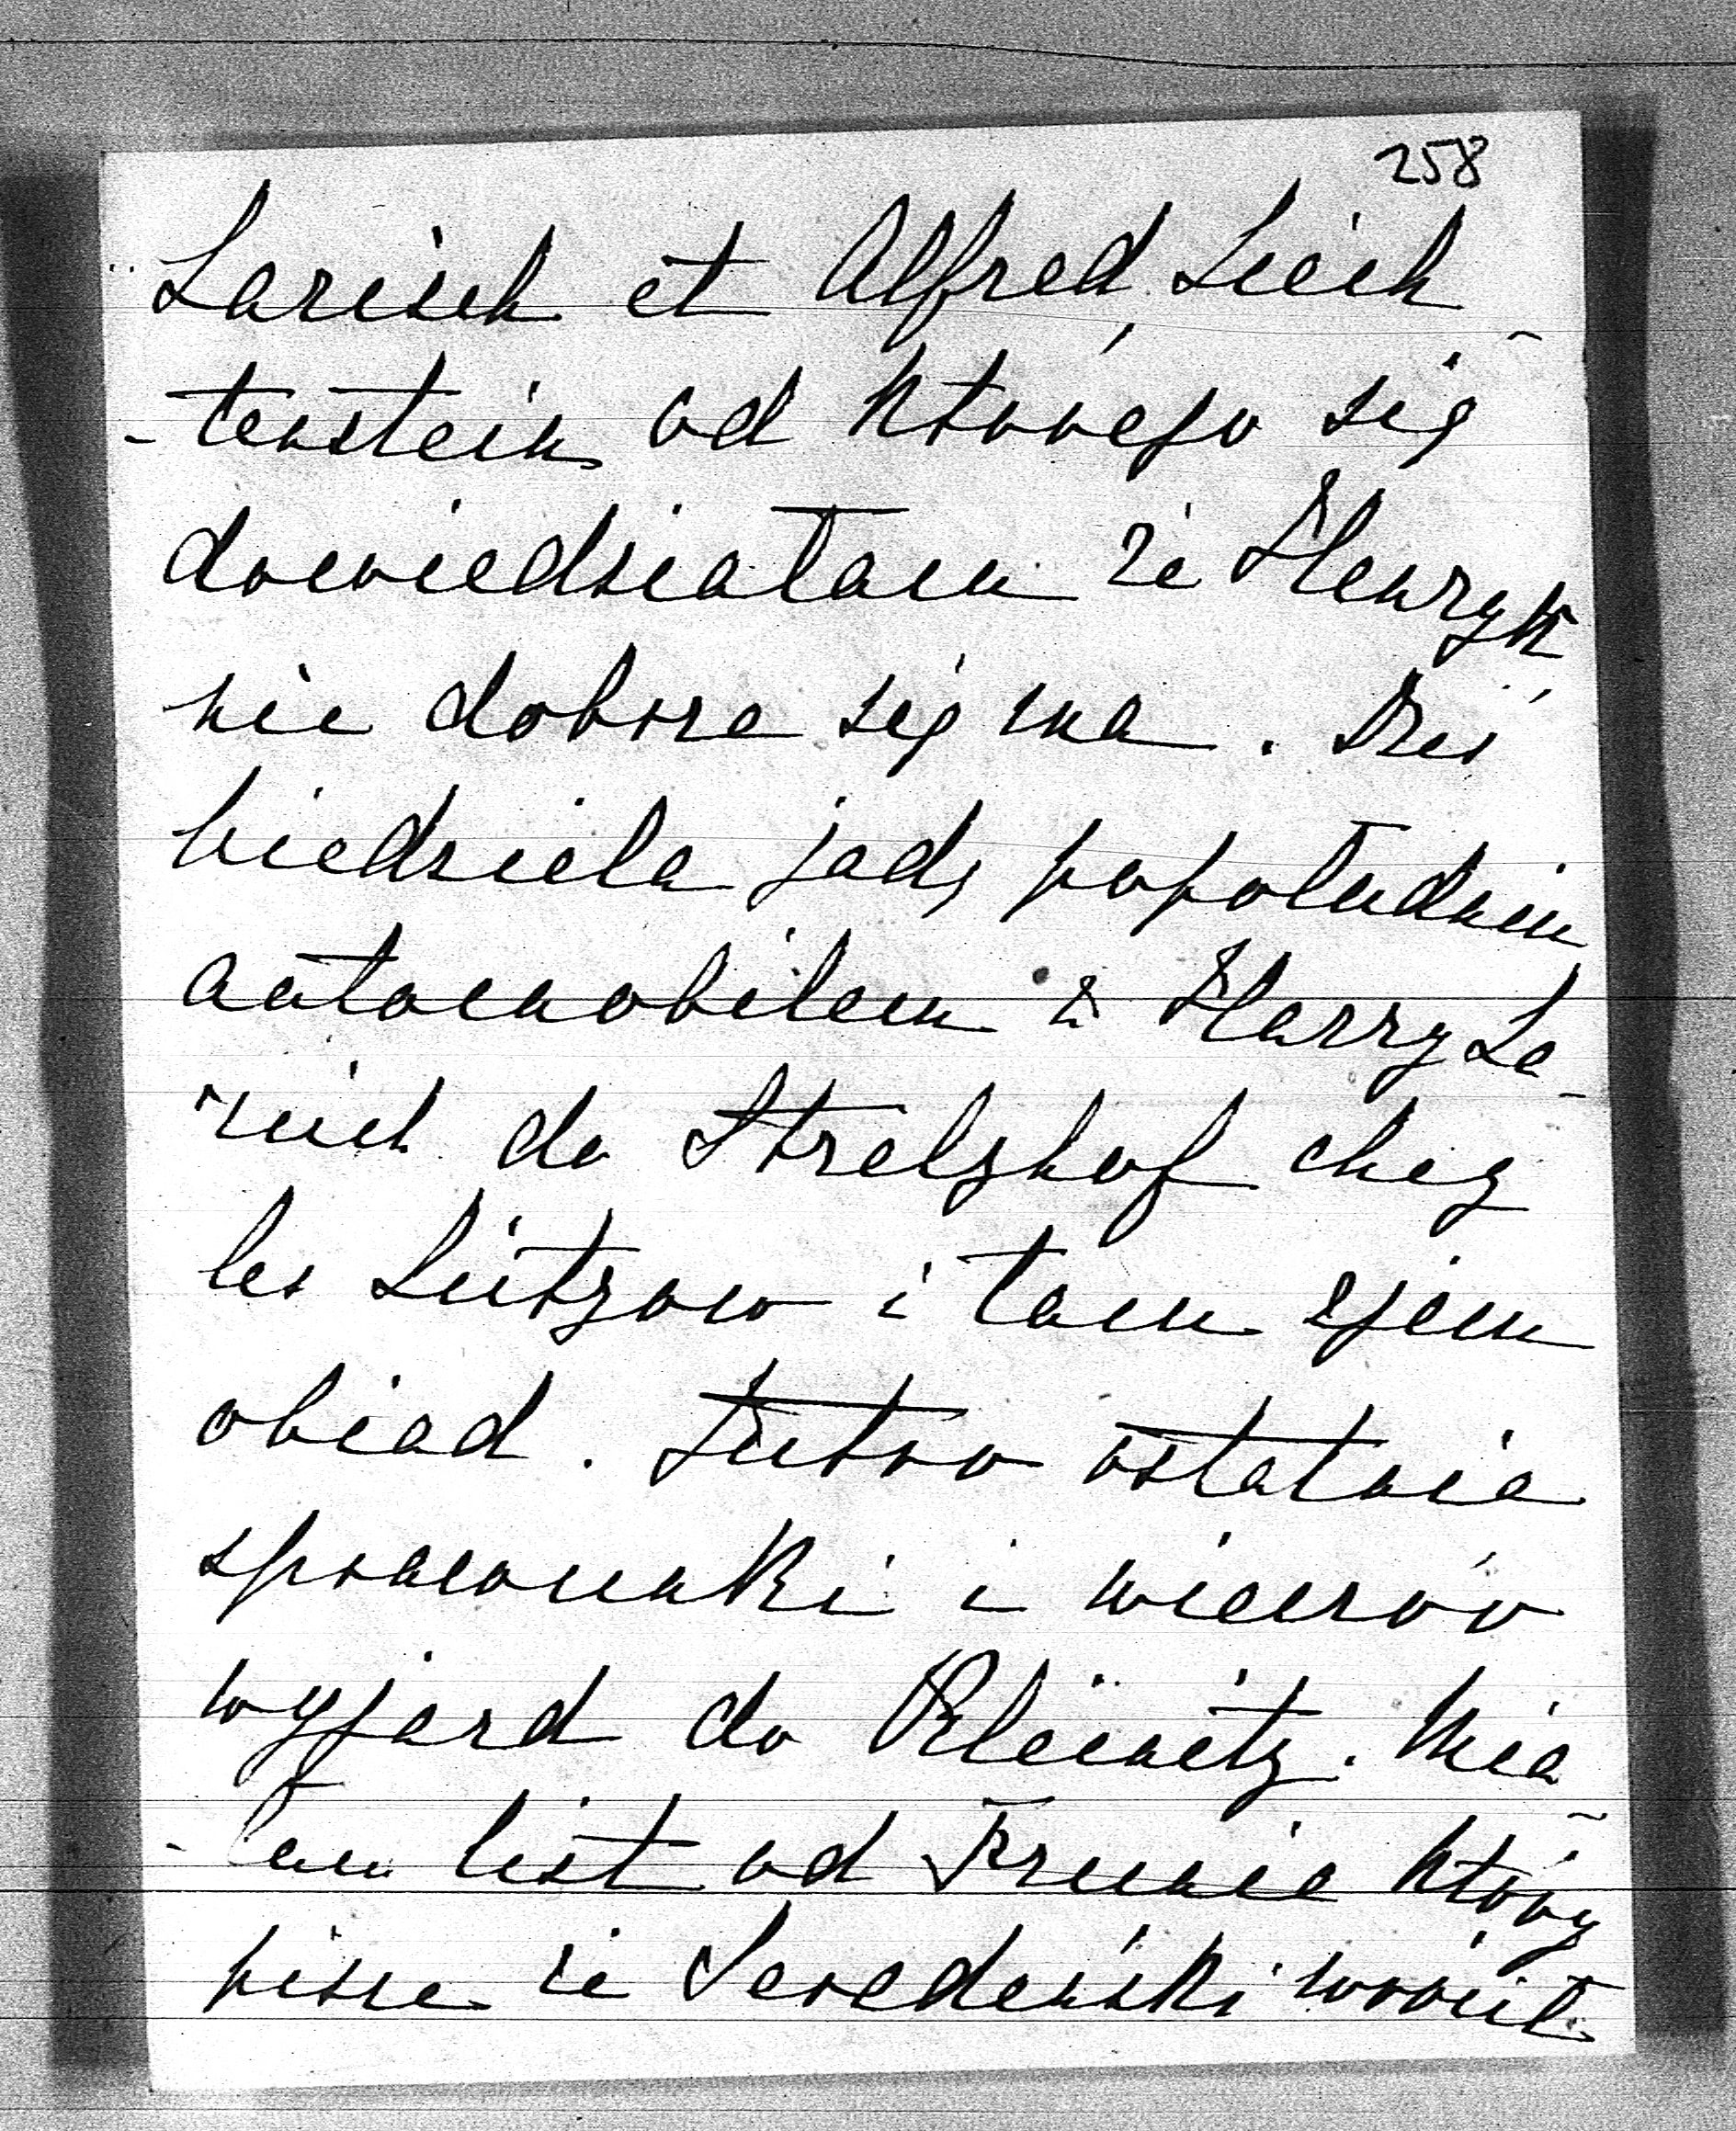 258
Larisch et Alfred Liech
-tenstein od którego się
dowiedziałam że Henryk
nie dobrze się ma. Dziś
niedziela jadę popołudniu
automobilem z Harry La-
risch do Strelzhof chez
les Lützow i tam zjem
obiad. Jutro ostatnie
sprawunki i wieczór
wyjazd do Räcknitz. Mia
-łam list od Frunia który
pisze że Seredeński wrócił